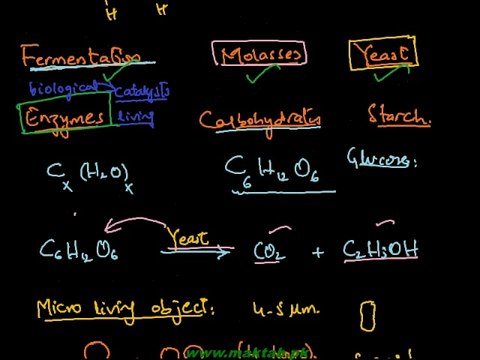 H H
Fermentation Molasses Yeast
biological catalysts
Enzymes living Carbohydrates Starch.
Cx (H2O)x C6H12O6 Glucose:
C6H12O6 Yeast → CO2 + C2H5OH
Micro living object: 4-5 µm.
www.maktab.pk